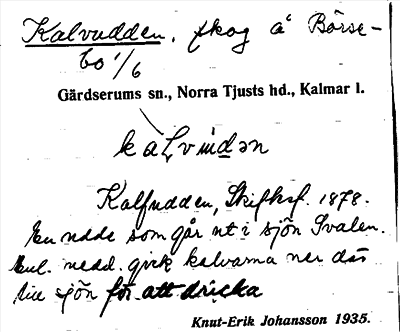 Kalvudden, skog å Börse-
bo 1/6
Gärdserums sn., Norra Tjusts hd., Kalmar l.
Kalfudden, Skifksf. 1878.
En udde som går ut i sjön Svalen.
Enl. medd. gick kalvarna ner där
till sjön för att dricka
Knut-Erik Johansson 1935.